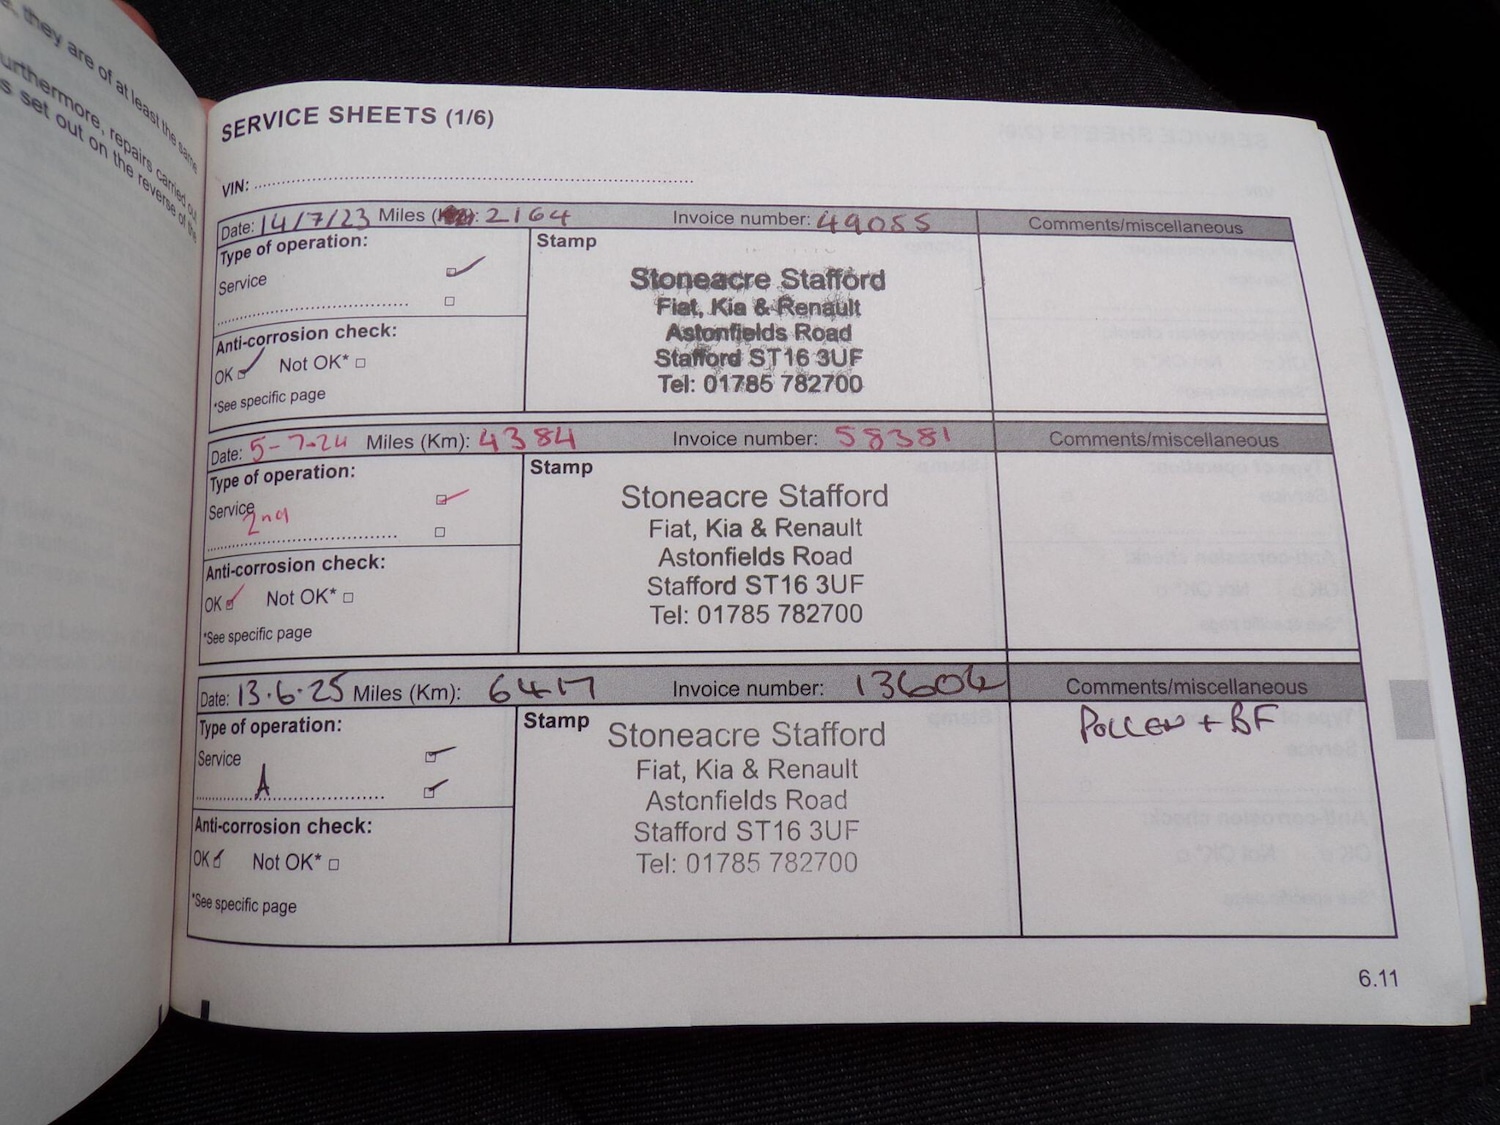 e, they are of at least the same
urthermore, repairs carried out
s set out on the reverse of the
SERVICE SHEETS (1/6)
VIN:
Date: 14/7/23 Miles : 2164 Invoice number: 49055 Comments/miscellaneous
Type of operation: Stamp
Service
Stoneacre Stafford
Fiat, Kia & Renault
Astonfields Road
Stafford ST16 3UF
Tel: 01785 782700
Anti-corrosion check:
OK Not OK*
*See specific page
Date: 5-7-24 Miles (Km): 4384 Invoice number: 58381 Comments/miscellaneous
Type of operation: Stamp
Service
2nd
Stoneacre Stafford
Fiat, Kia & Renault
Astonfields Road
Stafford ST16 3UF
Tel: 01785 782700
Anti-corrosion check:
OK Not OK*
*See specific page
Date: 13.6.25 Miles (Km): 6417 Invoice number: 13606 Comments/miscellaneous
Type of operation: Stamp
Service
A
Stoneacre Stafford
Fiat, Kia & Renault
Astonfields Road
Stafford ST16 3UF
Tel: 01785 782700
POLLEN + BF
Anti-corrosion check:
OK Not OK*
*See specific page
6.11